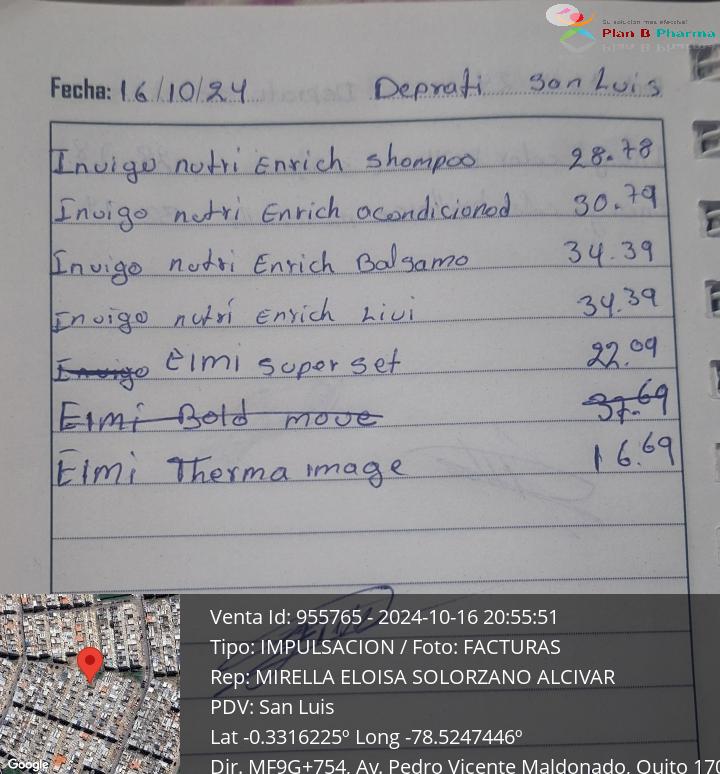 Su solución mas efectiva!
Plan B Pharma
Fecha: 16/10/24 Deprati San Luis
Invigo nutri Enrich shampoo 28.78
Invigo nutri Enrich acondicionad 30.79
Invigo nutri Enrich Balsamo 34.39
Invigo nutri Enrich Livi 34.39
Invigo EImi super set 22.09
EImi Bold move 37.69
EImi Therma image 16.69
Venta Id: 955765 - 2024-10-16 20:55:51
Tipo: IMPULSACION / Foto: FACTURAS
Rep: MIRELLA ELOISA SOLORZANO ALCIVAR
PDV: San Luis
Lat -0.3316225º Long -78.5247446º
Dir. MF9G+754, Av. Pedro Vicente Maldonado, Quito 170
Google